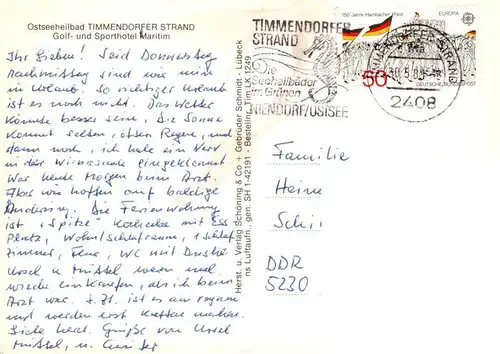 Ostseeheilbad TIMMENDORFER STRAND
Golf- und Sporthotel Maritim
Ihr Lieben! Seid Donnerstag
nachmittag sind wir nun
in Urlaub. So richtiger Urlaub
ist es noch nicht. Das Wetter
könnte besser sein, die Sonne
kommt selten, öfter Regen, und
dann noch, ich habe ein Nerv
in der Wirbelsäule eingeklemmt
War heute Morgen beim Arzt.
Aber wir hoffen auf baldige
Änderung. Die Ferienwohnung
ist "Spitze" Kochecke mit Ess
Platz, Wohn/Schlafraum, 1 Schlaf
zimmer, Flur, WC mit Dusche
Ursel u. waren mal
wieder einkaufen, als ich beim
Arzt war. z.Zt. ist es am regnen
und werden erst Kaffee machen.
herzl. Grüße von Ursel
u.
Herst. u. Verlag Schöning & Co + Gebrüder Schmidt · Lübeck
ns Luftaufn., gen. SH 1-42191 - Bestellnr. Tim LK 1249
TIMMENDORFER
STRAND
Die
Seeheilbäder
im Grünen
NIENDORF/OSTSEE
150 Jahre Hambacher Fest
EUROPA
50
DEUTSCHE BUNDESPOST
TIMMENDORFER STRAND
2408
Familie
Heine
DDR
5230